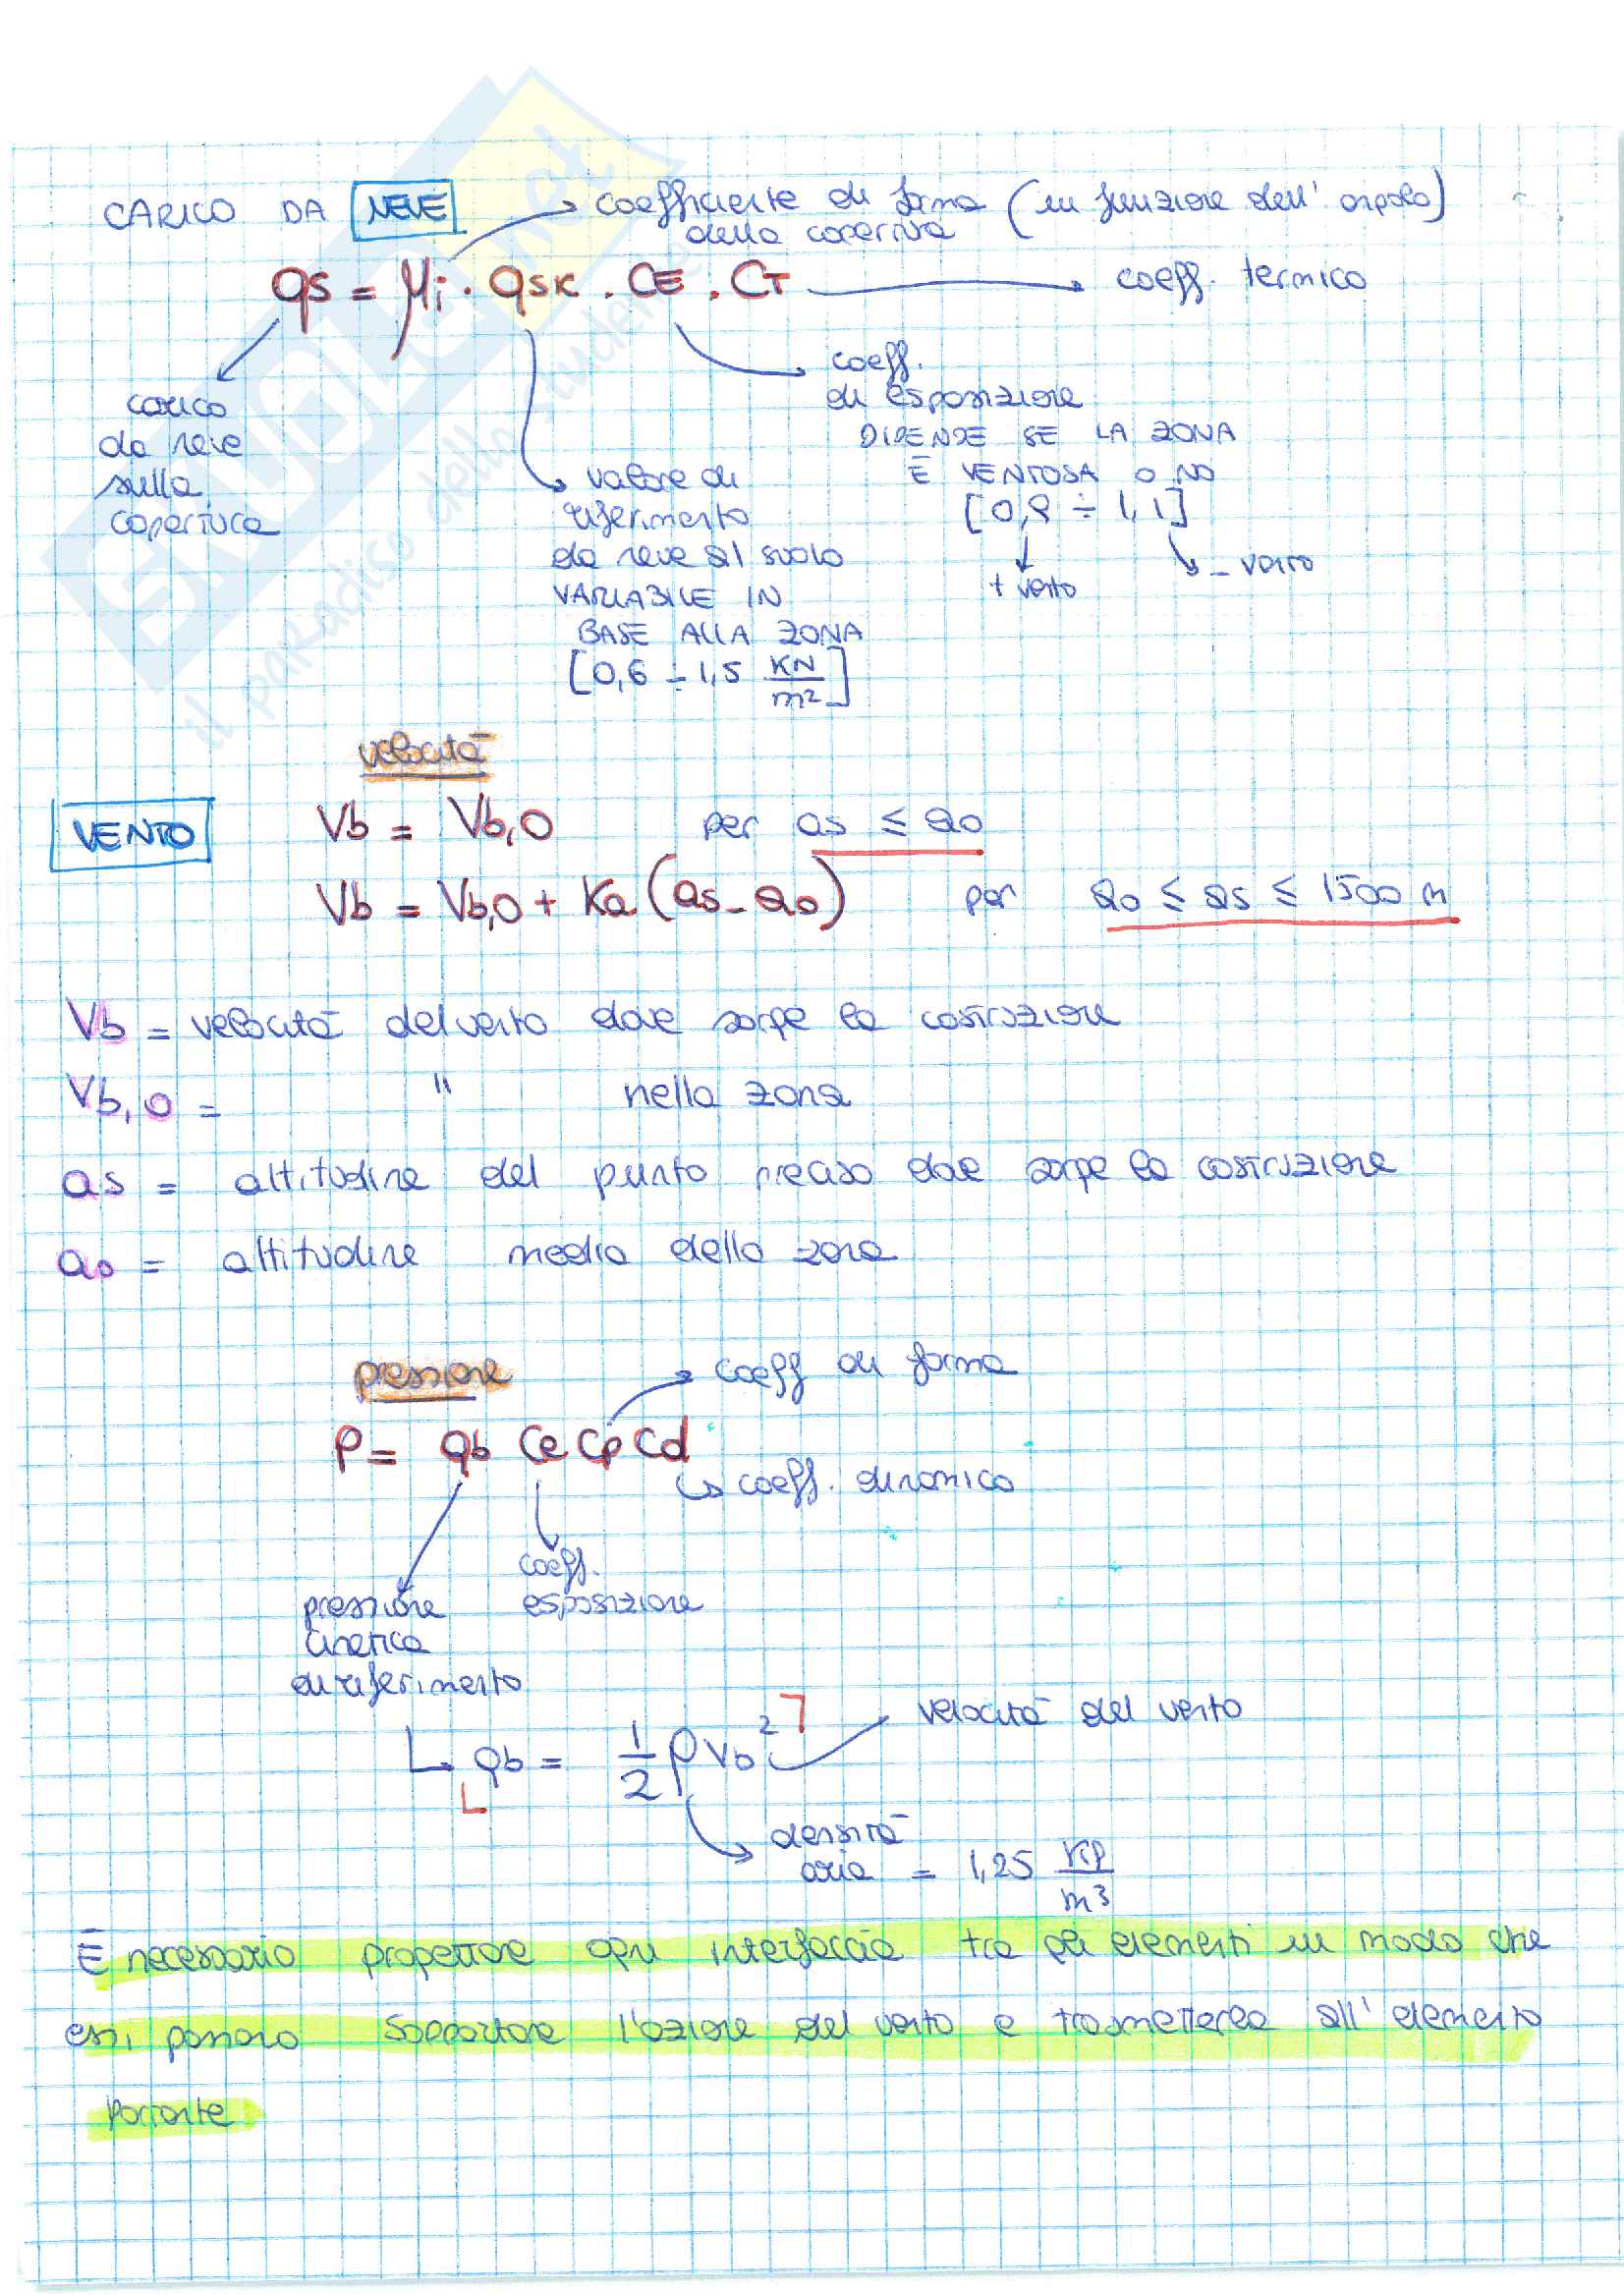 CARICO DA NEVE
coefficiente di forma (in funzione dell'angolo)
della copertura
qs = μi · qsk · CE · CT
coeff. termico
carico
da neve
sulla
copertura
valore di
riferimento
da neve al suolo
VARIABILE IN
BASE ALLA ZONA
[0,6 ÷ 1,5 KN/m²]
coeff.
di esposizione
DIPENDE SE LA ZONA
È VENTOSA O NO
[0,9 ÷ 1,1]
+ vento
- vento
velocità
VENTO
Vb = Vb,0 per as ≤ a0
Vb = Vb,0 + Ka (as - a0) per a0 ≤ as ≤ 1500 m
Vb = velocità del vento dove sorge la costruzione
Vb,0 = " nella zona
as = altitudine del punto preciso dove sorge la costruzione
a0 = altitudine media della zona
pressione
coeff di forma
P = qb Ce Cp Cd
coeff. dinamico
coeff.
esposizione
pressione
cinetica
di riferimento
qb = 1/2 ρ Vb²
velocità del vento
densità
aria = 1,25 Kg/m³
È necessario progettare ogni interfaccia tra gli elementi in modo che
essi possano sopportare l'azione del vento e trasmetterla all'elemento
portante
il paradiso dello studente